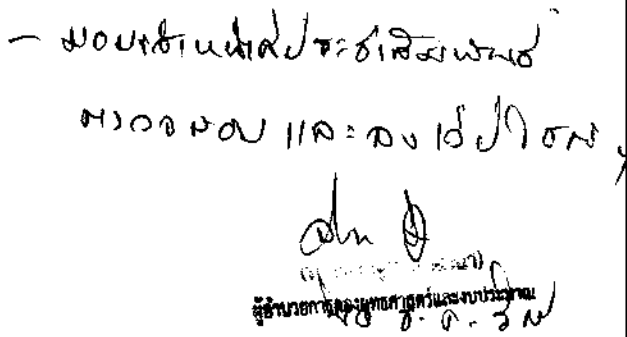 - มอบเจ้าหน้าที่ประชาสัมพันธ์
ตรวจสอบ และลงเว็บไซต์
ผู้อำนวยการกองยุทธศาสตร์และงบประมาณ
ธ.ค.